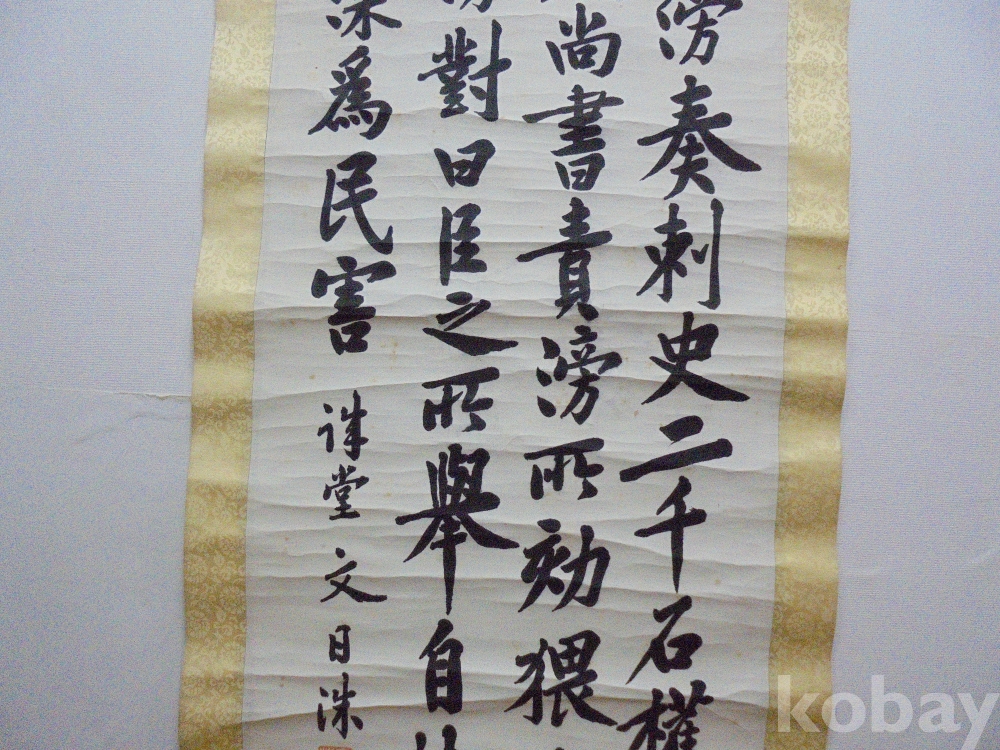 滂奏刺史二千石權
尚書責滂所劾猥
滂對曰臣之所舉自
深爲民害 誅堂 文日洙
kobay